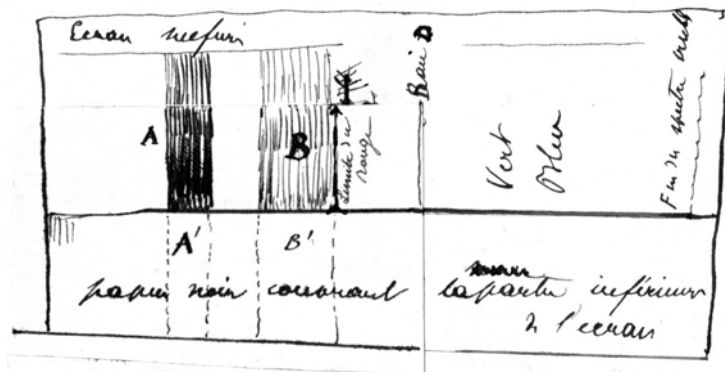 Ecran
Raie D
A
B
Limite du
rouge
Vert
Bleu
Fin du spectre
A'
B'
papier noir couvrant
la partie inférieure
de l'écran